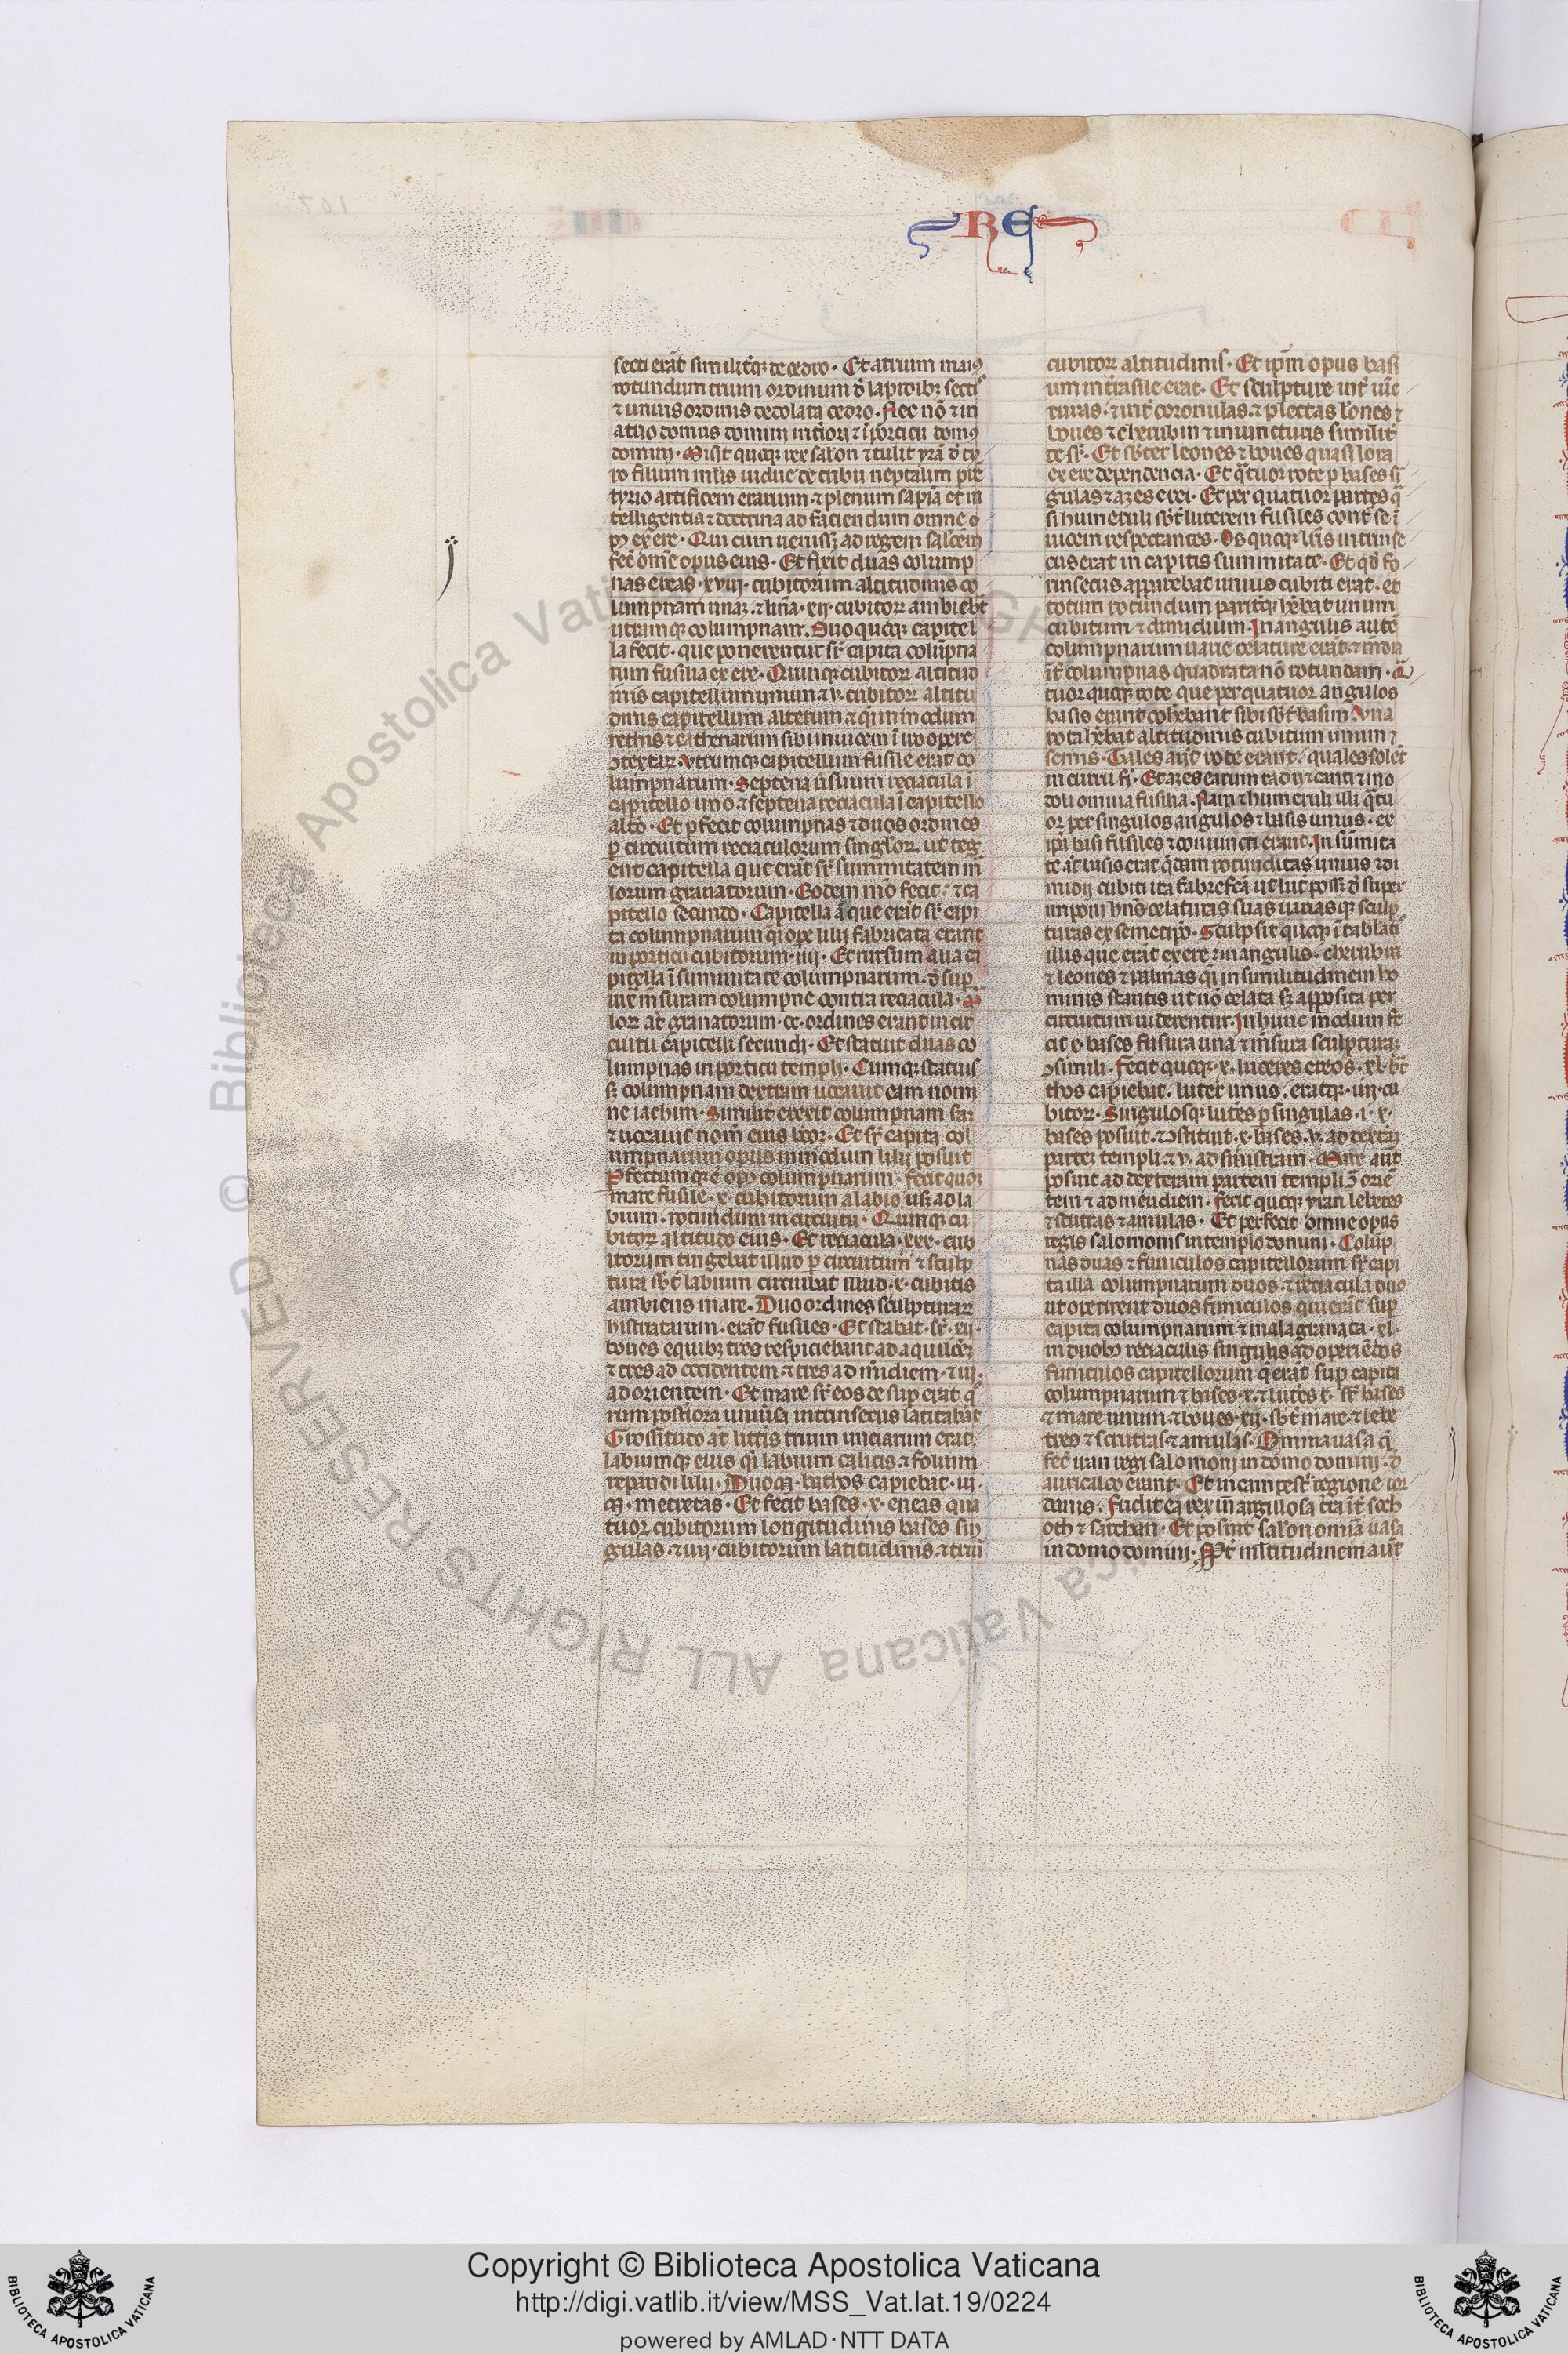 RE
secti erāt similit̓q; de cedro · Et atrium maiꝰ
rotundum trium ordinum d̓ lapidibꝫ sectis
⁊ unius ordinis dedolata cedro · Nec nō ⁊ in
atrio domus domini int̓iori ⁊ ī porticu domꝰ
domini · Misit quoqꝫ rex salōn ⁊ tulit yrā d̓ ty
ro filium ml̓is uidue de tribu neptalim pr̄e
tyrio artificem erarium ⁊ plenum sapīa et in
telligentia ⁊ doctrina ad faciendum omne o
pꝰ ex ere · Qui cum uenissꝫ ad regem salōem
fec̄ om̄e opus eius · Et finxit duas colump
nas ereas · xviii · cubitorum altitudinis co
lumpnam unaꝫ · ⁊ linēa · xii · cubitoꝝ ambiebt̄
utramqꝫ columpnam. Duo quoqꝫ capitel
la fecit · que ponerentur sr̄ capita colūpna
rum fusilia ex ere · Quinqꝫ cubitoꝝ altitud
inis capitellum unum ⁊ v · cubitoꝝ altitu
dinis capitellum alterum ⁊ q̄i in modum
rethis ⁊ cathenarum sibi inuicem ī iro opere
ɔtextaꝝ · Vtrumqꝫ capitellum fusile erat co
lumpnarum · Septena ū suum reciacula ī
capitello uno ⁊ septena reciacula ī capitello
alt̓o · Et p̱fecit columpnas ⁊ duos ordines
p̱ circuitum reciaculorum singl̓oꝝ. ut teg
ent capitella que erāt sr̄ summitatem m
lorum granatorum · Eodem mō fecit : ⁊ ca
pitello secundo · Capitella ā que erāt sr̄ capi
ta columpnarum q̄i ope lilij fabricata erant
in porticu cubitorum · iiii · Et rursum alia ca
pitella ī summitate columpnarum · d̓ sup̱
iux̄ m̄suram columpne contra reciacula · Ma
loꝝ āt granatorum · cc · ordines erant in cir
cuitu capitelli secundi · Et statuit duas co
lumpnas in porticu templi · Cumqꝫ statuis
sꝫ columpnam dextram uocauit eam nomi
ne iachim · Similit̓ erexit columpnam sāꝫ
⁊ uocauit nom̄ eius booꝫ · Et sr̄ capita col
umpnarum opus in modum lilij posuit
P̱fectumqꝫ ē opꝰ columpnarum · fecit quoqꝫ
mare fusile · x · cubitorum a labio usqꝫ ad la
bium · rotundum in circuitu · Quinqꝫ cu
bitoꝝ altitudo eius · Et reciacula · xxx · cub
itorum cingebat illud p̱ circuitum ⁊ sculp
tura sb̄t labium circuibat illud · x · cubitis
ambiens mare · Duo ordines sculpturaꝝ
histratarum · erāt fusiles · Et stabat · sr̄ · xii ·
boues e quibꝫ tres respiciebant ad aquiloēꝫ
⁊ tres ad occidentem ⁊ tres ad m̄idiem · ⁊ iii ·
ad orientem · Et mare sr̄ eos de sup̱ erat q̄
rum post̓iora uniūsa intrinsecus latitabāt
Grossitudo āt litt̓is trium unciarum erat.
labiumqꝫ eius q̄i labium calicis ⁊ folium
repandi lilij · Duo m̄ · bathos capiebat · iii ·
m̄ · metretas · Et fecit bases · x · eneas qua
tuor cubitorum longitudinis bases sin
gulas · ⁊ iiii · cubitorum latitudinis · ⁊ triū
cubitoꝝ altitudinis · Et ip̄m opus basi
um int̓rasile erat · Et sculpture int̓ iūc
turas · ⁊ int̓ coronulas · ⁊ plectas leones ⁊
boues ⁊ cherubin ⁊ in iuncturis similit̓
de sr̄ · Et sb̄ter leones ⁊ boues quasi lora
ex ere dependencia · Et q̄tuor rote p̱ bases si
gulas ⁊ axes erei · Et per quatuor partes q̄
si humeruli sb̄t luterem fusiles cont̄ se ī
uicem respectantes · Os quoqꝫ lut̓is intrinse
cus erat in capitis summitate · Et qd̓ fo
rinsecus apparebat unius cubiti erat · et
totum rotundum paritqꝫ hēbat unum
cubitum ⁊ dimidium · In angulis autē
columpnarum uarie celature erāt · ⁊ media
īt̓ columpnas quadrata nō rotundam · Q̄
tuor quoqꝫ rote que per quatuor angulos
basis erant cohēbant sibi sb̄t basim · Vna
rota hēbat altitudinis cubitum unum ⁊
semis · Tales aūt rote erant · quales solēt
in curru fi̓ · Et axes earum radij ⁊ canti ⁊ mo
doli omnia fusilia · Nam ⁊ humeruli illi q̄tu
or per singulos angulos ⁊ basis unius · ex
ip̄a basi fusiles ⁊ coniuncti erant. In sūmita
te āt basis erat q̄dam rotunditas unius ⁊ di
midij cubiti ita fabrefc̄a ut lut̓ possꝫ d̓ super
imponi hn̄s celaturas suas uarias qꝫ sculp
turas ex semetip̄o · Sculpsit quoqꝫ ī tablati
illis que erāt ex ere ⁊ in angulis · cherubin
⁊ leones ⁊ palmas q̄i in similitudinem ho
minis stantis ut nō celata sꝫ apposita per
circuitum uiderentur. In hunc modum fe
cit x · bases fusura una ⁊ m̄sura sculpturaꝫ
ɔsimili · fecit quoqꝫ · x · luteres ereos · xl · ba
thos capiebat · luter unus · eratqꝫ · iiii · cu
bitoꝝ · Singulosqꝫ lut̓es p̱ singulas · i · x ·
bases posuit · ⁊ ɔstituit · x · bases · v · ad dextāꝫ
parteꝫ templi ⁊ v · ad sinistram · Mare aūt
posuit ad dexteram partem templi ɔ̄ oriē
tem ⁊ ad meridiem · fecit quoqꝫ yran lebetes
⁊ scutras ⁊ amulas · Et perfecit omne opus
regis salomonis in templo domini · Colūp
nas duas ⁊ funiculos capitellorum sr̄ capi
ta illa columpnarum duos · ⁊ reciacula duo
ut operirent duos funiculos qui erāt sup̱
capita columpnarum ⁊ malagranata · xl ·
in duobꝰ reciaculis singulis ad operiēdos
funiculos capitellorum q̄ erāt sup̱ capita
columpnarum ⁊ bases · x · ⁊ lut̓es x · sr̄ bases
⁊ mare unum ⁊ boues · xii · sb̄t mare · ⁊ lebe
tres ⁊ scutras · ⁊ amulas · Omnia uasa q̄
fec̄ iran regi salomoni in domo domini · d̓
auricalco erant · Et in campestr̄ regione ior
danis · Fudit ea rex in argillosa t̓ra īt̓ soch
oth ⁊ sarthan · Et posuit salōn omīa uasa
in domo domini · Pt̄ ml̓titudinem aūt
© Biblioteca Apostolica Vaticana ALL RIGHTS RESERVED
Copyright © Biblioteca Apostolica Vaticana
http://digi.vatlib.it/view/MSS_Vat.lat.19/0224
powered by AMLAD·NTT DATA
BIBLIOTECA APOSTOLICA VATICANA
BIBLIOTECA APOSTOLICA VATICANA